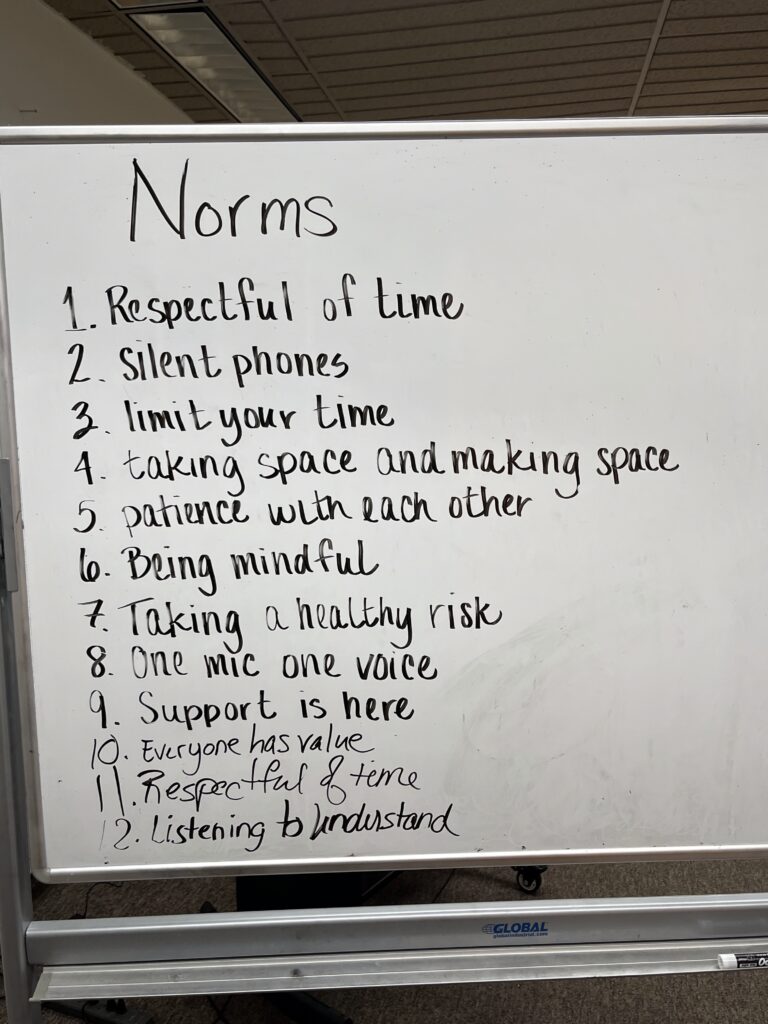 Norms
1. Respectful of time
2. Silent phones
3. limit your time
4. taking space and making space
5. patience with each other
6. Being mindful
7. Taking a healthy risk
8. One mic one voice
9. Support is here
10. Everyone has value
11. Respectful of time
12. Listening to understand
GLOBAL
globalindustrial.com